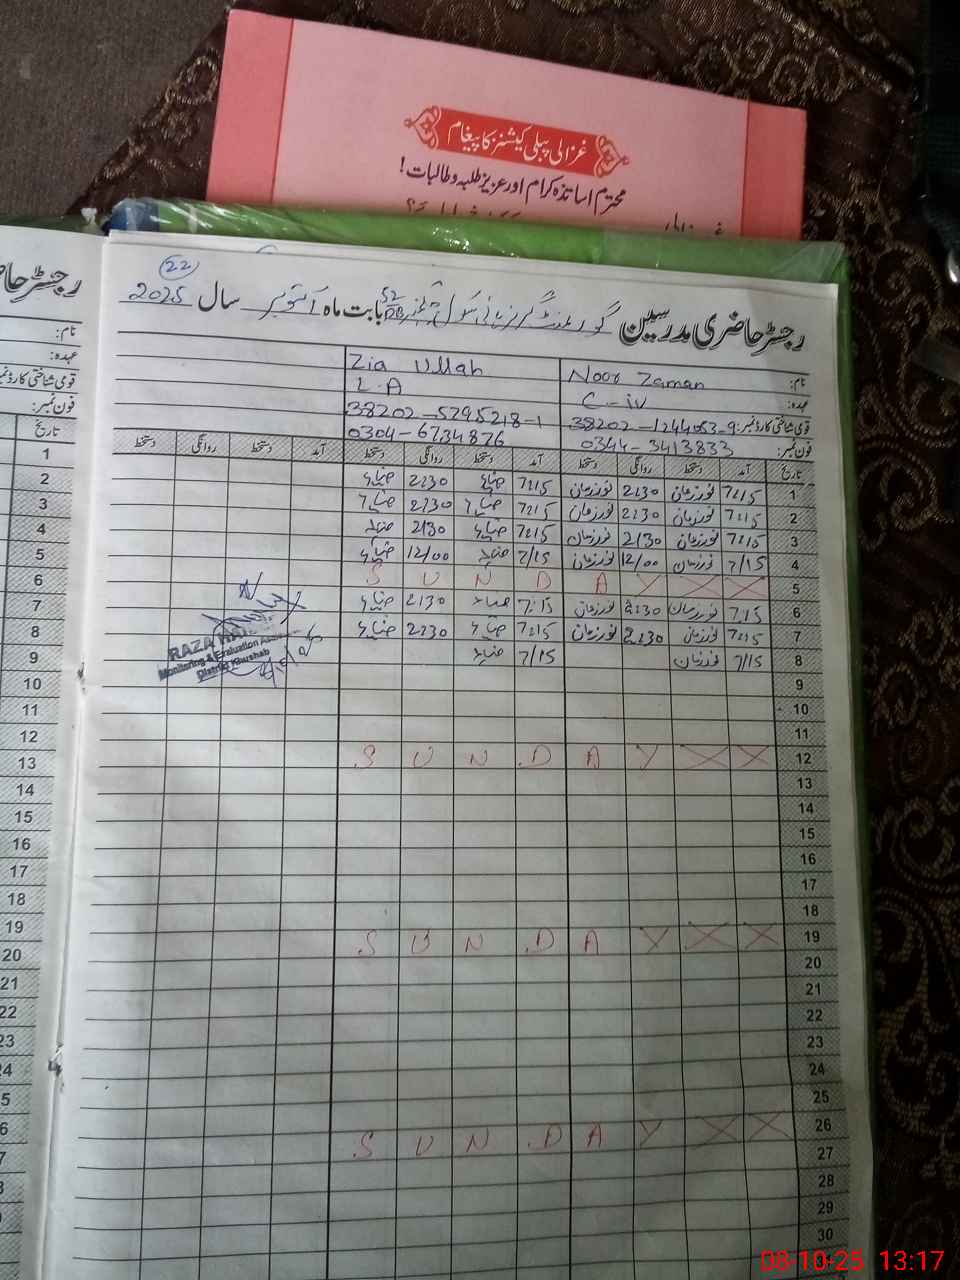 غزالی پبلی کیشنز کا پیغام
محترم اساتذہ کرام اور عزیز طلبہ و طالبات!
22
رجسٹر حاضری مدرسین گورنمنٹ گرلز ہائی سکول بابت ماہ اکتوبر سال 2025
نام: Noor Zaman Zia Ullah
عہدہ: C-iv L.A
قومی شناختی کارڈ نمبر: 38202-1244053-9 38202-5795218-1
فون نمبر: 0344-3413833 0304-6734876
تاریخ آمد دستخط روانگی دستخط آمد دستخط روانگی دستخط آمد دستخط روانگی دستخط
1 7:15 نورزمان 2:30 نورزمان 7:15 ضیاء 2:30 ضیاء
2 7:15 نورزمان 2:30 نورزمان 7:15 ضیاء 2:30 ضیاء
3 7:15 نورزمان 2/30 نورزمان 7:15 ضیاء 2/30 ضیاء
4 7/15 نورزمان 12/00 نورزمان 7/15 ضیاء 12/00 ضیاء
5 S U N D A Y X X
6 7:15 نورزمان 2:30 نورزمان 7:15 ضیاء 2:30 ضیاء
7 7:15 نورزمان 2:30 نورزمان 7:15 ضیاء 2:30 ضیاء
8 7/15 نورزمان 7/15 ضیاء
RAZA
Monitoring & Evaluation
District Khushab
9
10
11
12 S U N D A Y X X
13
14
15
16
17
18
19 S U N D A Y X X
20
21
22
23
24
25
26 S U N D A Y X X
27
28
29
30
رجسٹر حا
نام:
عہدہ:
قومی شناختی کارڈ نمبر
فون نمبر:
تاریخ
1
2
3
4
5
6
7
8
9
10
11
12
13
14
15
16
17
18
19
20
21
22
08-10-25 13:17